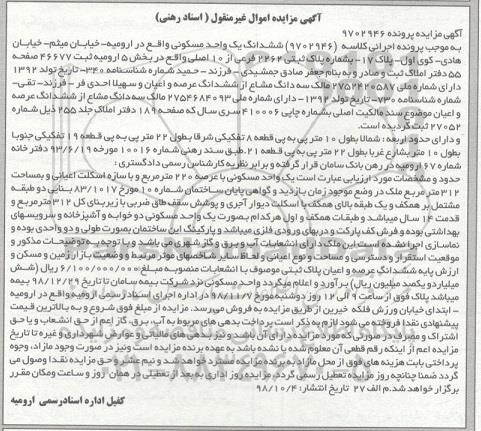 آگهی مزایده اموال غیرمنقول ( اسناد رهنی)
آگهی مزایده پرونده ۹۷۰۲۹۴۶
به موجب پرونده اجرائی کلاسه (۹۷۰۲۹۴۶) ششدانگ یک واحد مسکونی واقع در ارومیه- خیابان میثم- خیابان
هادی- کوی اول- پلاک ۱۷- بشماره پلاک ثبتی ۲۲۶۲ فرعی از ۱۰ اصلی واقع در بخش ۵ ارومیه ثبت ۴۶۶۷۷ صفحه
۵۵ دفتر املاک ثبت و صادر و به نام جعفر صادق جمشیدی - فرزند - حمید شماره شناسنامه ۳۴۰- تاریخ تولد ۱۳۹۲
دارای شماره ملی ۲۷۵۲۴۲۰۵۸۷ مالک سه دانگ مشاع از ششدانگ عرصه و اعیان و سهیلا احدی فر - فرزند- تقی-
شماره شناسنامه ۷۳۰- تاریخ تولد ۱۳۹۲ - دارای شماره ملی ۲۷۵۴۶۸۴۰۹۳ مالک سه دانگ مشاع از ششدانگ عرصه
و اعیان موضوع سند مالکیت اصلی بشماره چاپی ۴۱۰۰۰۶ سری سال که صفحه ۱۸۹ دفتر املاک جلد ۲۵۵ ذیل شماره
۲۷۰۵۲ ثبت گردیده است.
و دارای حدود اربعه : شمالا بطول ۱۰ متر پی به پی قطعه ۸ تفکیکی شرقا بطول ۲۲ متر پی به پی قطعه ۱۹ تفکیکی جنوبا
بطول ۱۰ متر بشارع غربا بطول ۲۲ متر پی به پی قطعه ۲۱. طبق سند رهنی شماره ۱۰۰۱۶ مورخه ۹۳/۶/۱۹ دفترخانه
شماره ۶۷ ارومیه در رهن بانک سامان قرار گرفته و برابر نظریه کارشناس رسمی دادگستری :
حدود و مشخصات مورد ارزیابی عبارت است یک واحد مسکونی با عرصه ۲۲۰ مترمربع و با سازه اسکلت اعیانی و بمساحت
۳۱۲ مترمربع ملک در وضع موجود زمان بازدید و گواهی پایان ساختمان شماره ۱۰ مورخ ۸۳/۱۰/۱۷ بنایی دو طبقه
مشتمل بر همکف و یک طبقه بالای همکف با اسکلت دیوار آجری و پوشش سقف طاق ضربی با زیربنای کل ۳۱۲ مترمربع و
قدمت ۱۴ سال میباشد و طبقات همکف و اول هرکدام بصورت یک واحد مسکونی دو خوابه و آشپزخانه و سرویسهای
بهداشتی بوده و فرش کف پارکت و دربهای ورودی فلزی میباشد و پارکینگ این ساختمان بصورت طولی و دو واحدی بوده و
نماسازی اجرا نشده است این ملک دارای انشعابات آب و برق و گاز شهری می باشد و با توجه به توضیحات مذکور و
موقعیت استقرار و دسترسی و مساحت و نوع اعیانی و لحاظ سایر شاخصهای موثر مرتبط و وضعیت بازار زمین و مسکن و
ارزش پایه ششدانگ عرصه و اعیان پلاک ثبتی موصوف با انشعابات منصوبه مبلغ: ۶/۱۰۰/۰۰۰/۰۰۰ ریال (شش
میلیارد و یکصد میلیون ریال) برآورد و اعلام میگردد واحد مسکونی نزد شرکت بیمه سامان تا تاریخ ۹۸/۱۲/۲۷ بیمه
میباشد پلاک فوق از ساعت ۹ الی ۱۲ روز دوشنبه مورخ ۹۸/۱۱/۷ در اداره اجرای اسناد رسمی ارومیه واقع در ارومیه
- ابتدای خیابان ورزش فلکه خیرین از طریق مزایده به فروش می رسد. مزایده از مبلغ فوق شروع و به بالاترین قیمت
پیشنهادی نقدا فروخته می شود لازم به ذکر است پرداخت بدهی های مربوط به آب، برق، گاز اعم از حق انشعاب و یا حق
اشتراک و مصرف در صورتی که مورد مزایده دارای آن باشد و نیز بدهی های مالیاتی و عوارض شهرداری و غیره تا تاریخ
مزایده اعم از اینکه رقم قطعی آن معلوم شده یا نشده باشد به عهده برنده مزایده است ونیز در صورت وجود مازاد، وجوه
پرداختی بابت هزینه های فوق از محل مازاد به برنده مزایده مسترد خواهد شد و نیم عشر و حق مزایده نقدا وصول می
گردد ضمنا چنانچه روز مزایده تعطیل رسمی گردد، مزایده روز اداری بعد از تعطیلی در همان روز و ساعت و مکان مقرر
برگزار خواهد شد. م الف ۲۷ تاریخ انتشار: ۹۸/۱۰/۴
کفیل اداره اسناد رسمی ارومیه